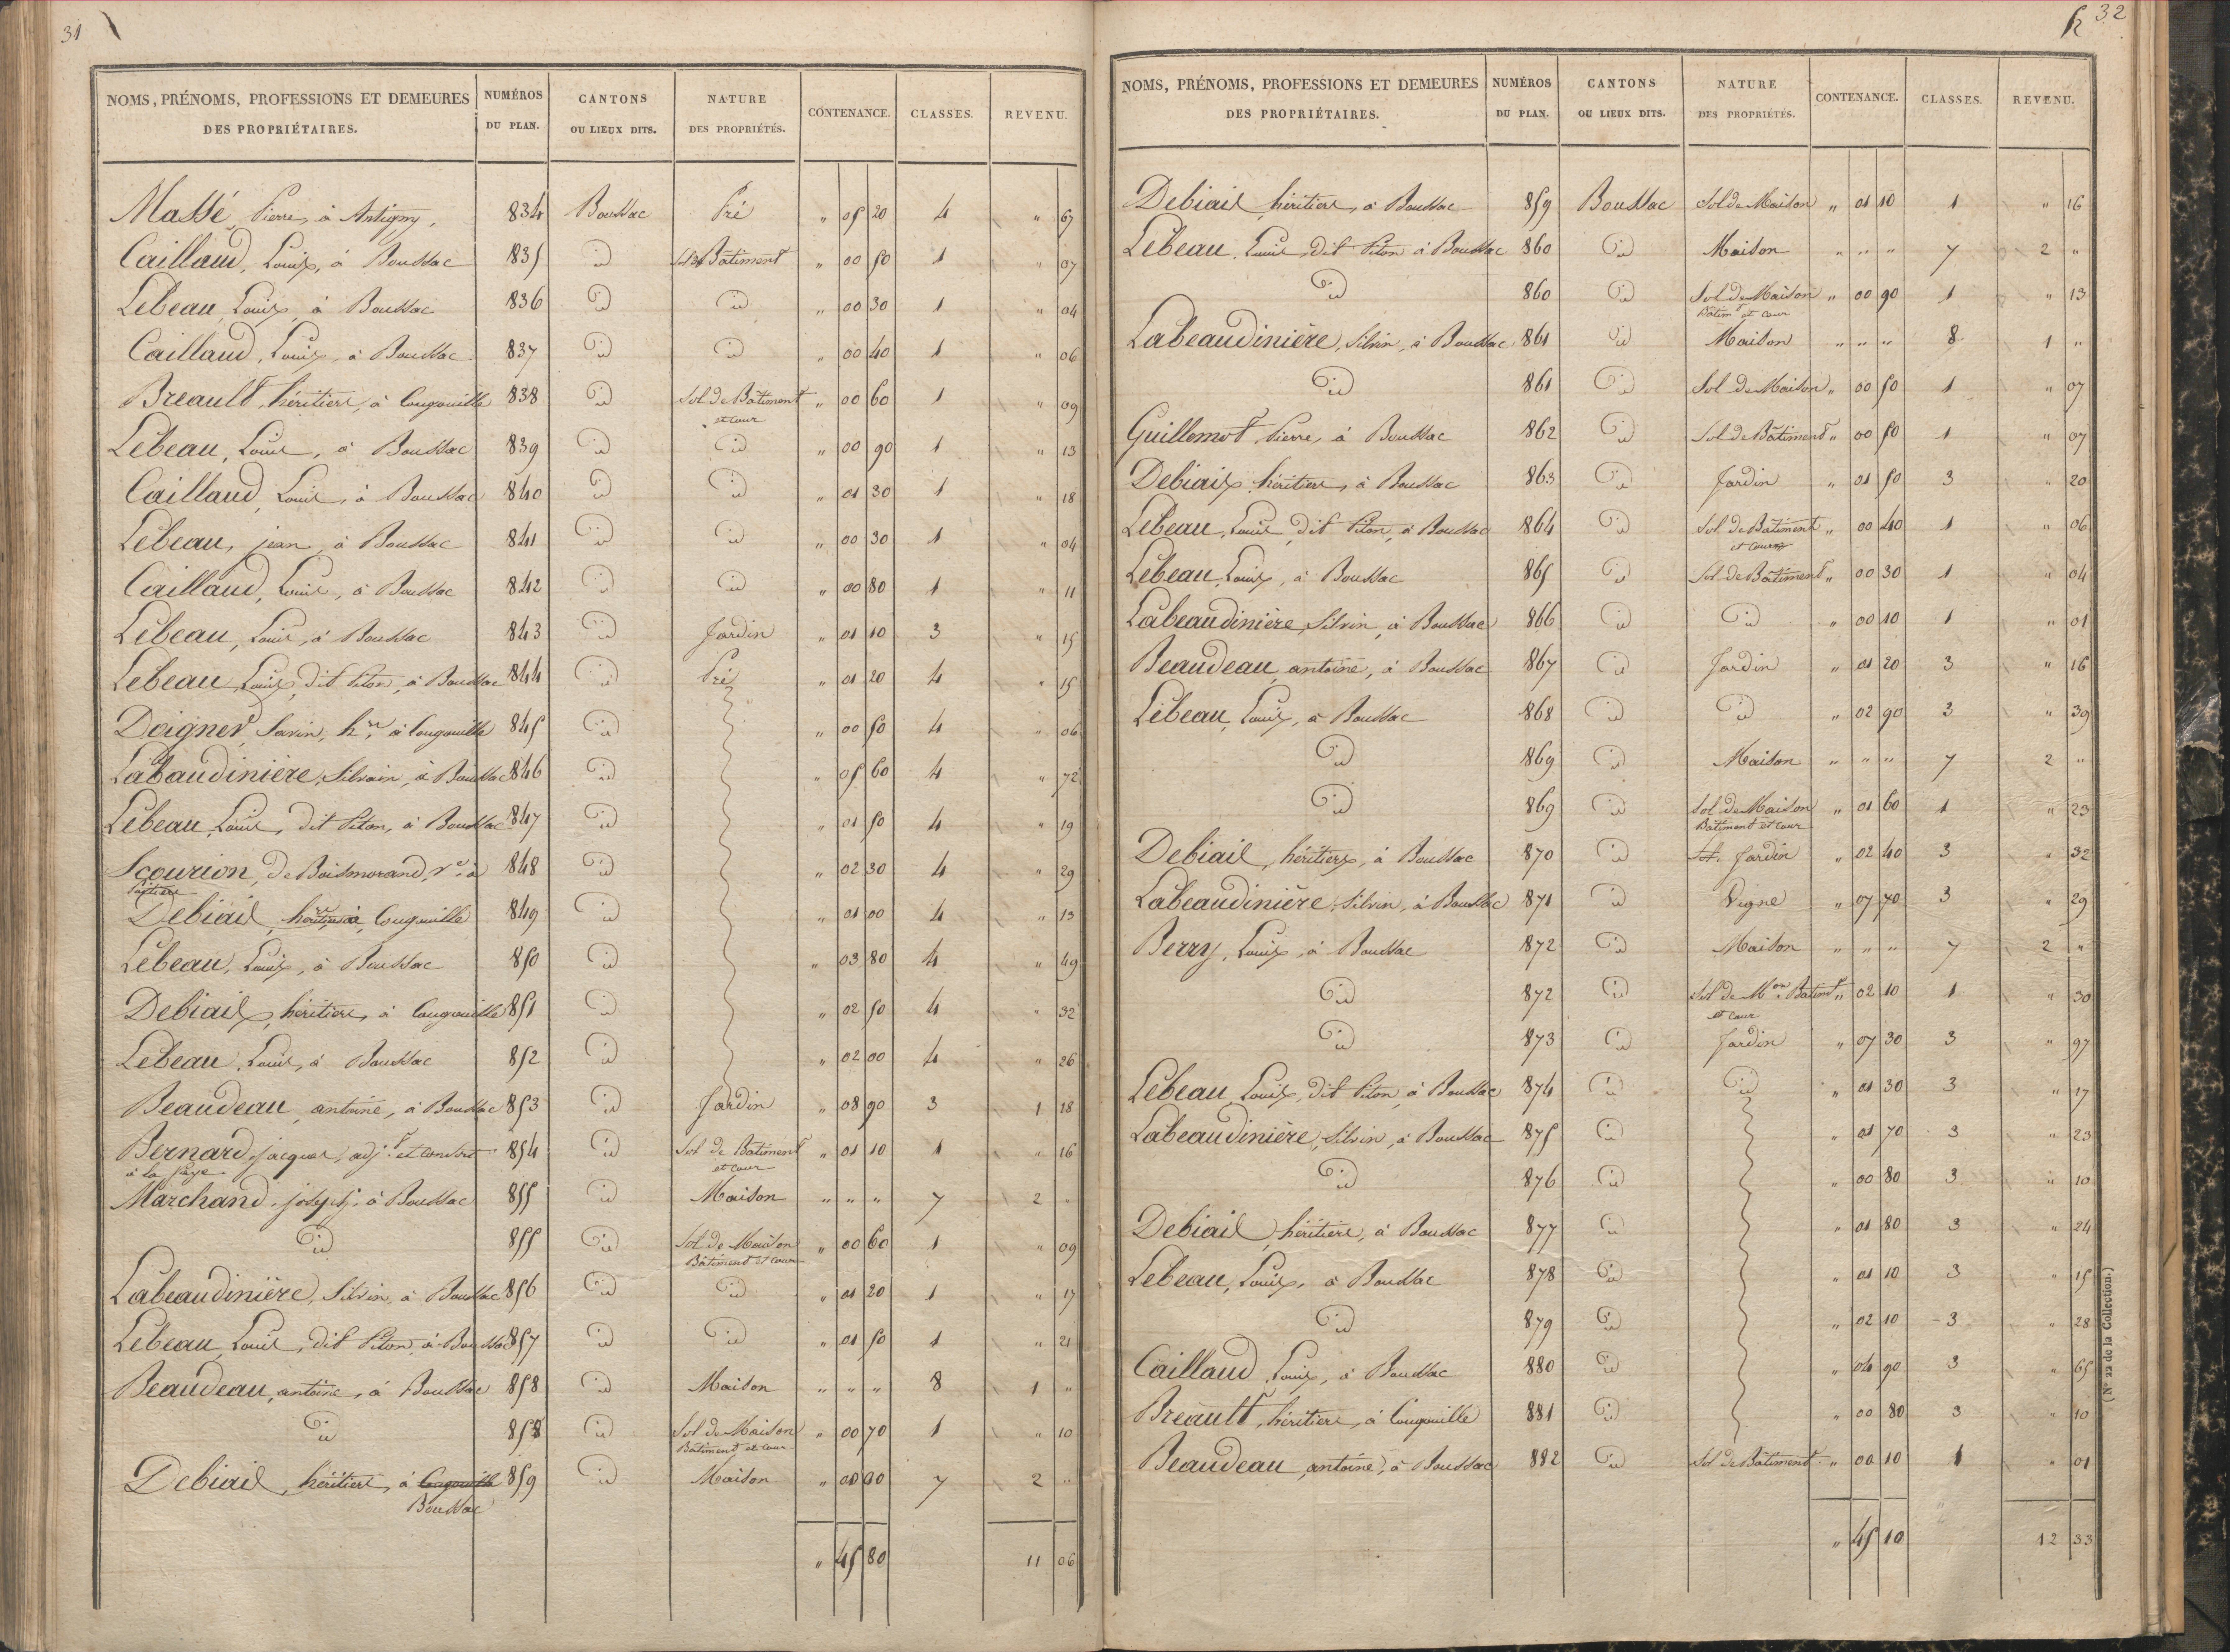 31
NOMS, PRÉNOMS, PROFESSIONS ET DEMEURES DES PROPRIÉTAIRES. NUMÉROS DU PLAN. CANTONS OU LIEUX DITS. NATURE DES PROPRIÉTÉS. CONTENANCE. CLASSES. REVENU.
Massé, Pierre, à Antigny, 834 Boussac Pré " 05 20 4 " 67
Caillaud, Louis, à Boussac 835 id Sol de Bâtiment " 00 50 1 " 07
Lebeau, Louis, à Boussac 836 id id " 00 30 1 " 04
Caillaud, Louis, à Boussac 837 id id " 00 40 1 " 06
Breault, héritiers, à Cougouille 838 id Sol de Bâtiment et cour " 00 60 1 " 09
Lebeau, Louis, à Boussac 839 id id " 00 90 1 " 13
Caillaud, Louis, à Boussac 840 id id " 01 30 1 " 18
Lebeau, jean, à Boussac 841 id id " 00 30 1 " 04
Caillaud, Louis, à Boussac 842 id id " 00 80 1 " 11
Lebeau, Louis, à Boussac 843 id Jardin " 01 10 3 " 15
Lebeau, Louis, dit Piton, à Boussac 844 id Pré " 01 20 4 " 15
Doigner, Savin, hers à Cougouille 845 id " 00 50 4 " 06
Labaudinière, Silvain, à Boussac 846 id " 05 60 4 " 72
Lebeau, Louis, dit Piton, à Boussac 847 id " 01 50 4 " 19
Scourion, de Boismorand, ve à Poitiers 848 id " 02 30 4 " 29
Debiais, héritiers à Cougouille 849 id " 01 00 4 " 13
Lebeau, Louis, à Boussac 850 id " 03 80 4 " 49
Debiais, héritiers, à Cougouille 851 id " 02 50 4 " 32
Lebeau, Louis, à Boussac 852 id " 02 00 4 " 26
Beaudeau, antoine, à Boussac 853 id Jardin " 08 90 3 1 18
Bernard, jacques, adjt et consort à la Paye 854 id Sol de Bâtiment et cour " 01 10 1 " 16
Marchand, joseph, à Boussac 855 id Maison " " " 7 2 "
id 855 id Sol de Maison Bâtiment et cour " 00 60 1 " 09
Labeaudinière, Silvin, à Boussac 856 id id " 01 20 1 " 17
Lebeau, Louis, dit Piton, à Boussac 857 id id " 01 50 1 " 21
Beaudeau, antoine, à Boussac 858 id Maison " " " 8 1 "
id 858 id Sol de Maison Bâtiment et cour " 00 70 1 " 10
Debiais, héritiers, à Cougouille Boussac 859 id Maison " 00 00 7 2 "
" 45 80 11 06
32
NOMS, PRÉNOMS, PROFESSIONS ET DEMEURES DES PROPRIÉTAIRES. NUMÉROS DU PLAN. CANTONS OU LIEUX DITS. NATURE DES PROPRIÉTÉS. CONTENANCE. CLASSES. REVENU.
Debiais, héritiers, à Boussac 859 Boussac Sol de Maison " 01 10 1 " 16
Lebeau, Louis, dit Piton à Boussac 860 id Maison " " " 7 2 "
id 860 id Sol de Maison Bâtimt et cour " 00 90 1 " 13
Labeaudinière, Silvin, à Boussac 861 id Maison " " " 8 1 "
id 861 id Sol de Maison " 00 50 1 " 07
Guillemot, Pierre, à Boussac 862 id Sol de Bâtiment " 00 50 1 " 07
Debiais, héritiers, à Boussac 863 id Jardin " 01 50 3 " 20
Lebeau, Louis, dit Piton, à Boussac 864 id Sol de Bâtiment et cour " 00 40 1 " 06
Lebeau, Louis, à Boussac 865 id Sol de Bâtiment " 00 30 1 " 04
Labeaudinière, Silvin, à Boussac 866 id id " 00 10 1 " 01
Beaudeau, antoine, à Boussac 867 id Jardin " 01 20 3 " 16
Lebeau, Louis, à Boussac 868 id id " 02 90 3 " 39
id 869 id Maison " " " 7 2 "
id 869 id Sol de Maison Bâtiment et cour " 01 60 1 " 23
Debiais, héritiers, à Boussac 870 id Jardin " 02 40 3 " 32
Labeaudinière, Silvin, à Boussac 871 id Vigne " 07 70 3 " 29
Berry, Louis, à Boussac 872 id Maison " " " 7 2 "
id 872 id Sol de Mon Batimt et cour " 02 10 1 " 30
id 873 id Jardin " 07 30 3 " 97
Lebeau, Louis, dit Piton, à Boussac 874 id id " 01 30 3 " 17
Labeaudinière, Silvin, à Boussac 875 id " 01 70 3 " 23
id 876 id " 00 80 3 " 10
Debiais, héritiers, à Boussac 877 id " 01 80 3 " 24
Lebeau, Louis, à Boussac 878 id " 01 10 3 " 15
id 879 id " 02 10 3 " 28
Caillaud, Louis, à Boussac 880 id " 04 90 3 " 65
Breault, héritiers, à Cougouille 881 id " 00 80 3 " 10
Beaudeau, antoine, à Boussac 882 id Sol de Bâtiment " 00 10 1 " 01
" 45 10 12 33
(N° 22 de la Collection.)